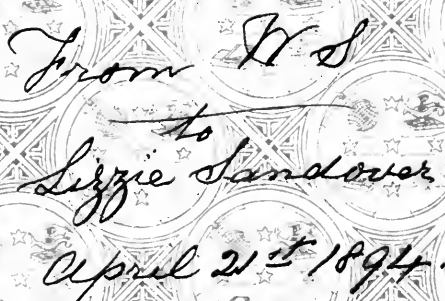 From W S
to
Lizzie Sandover
April 21st 1894.